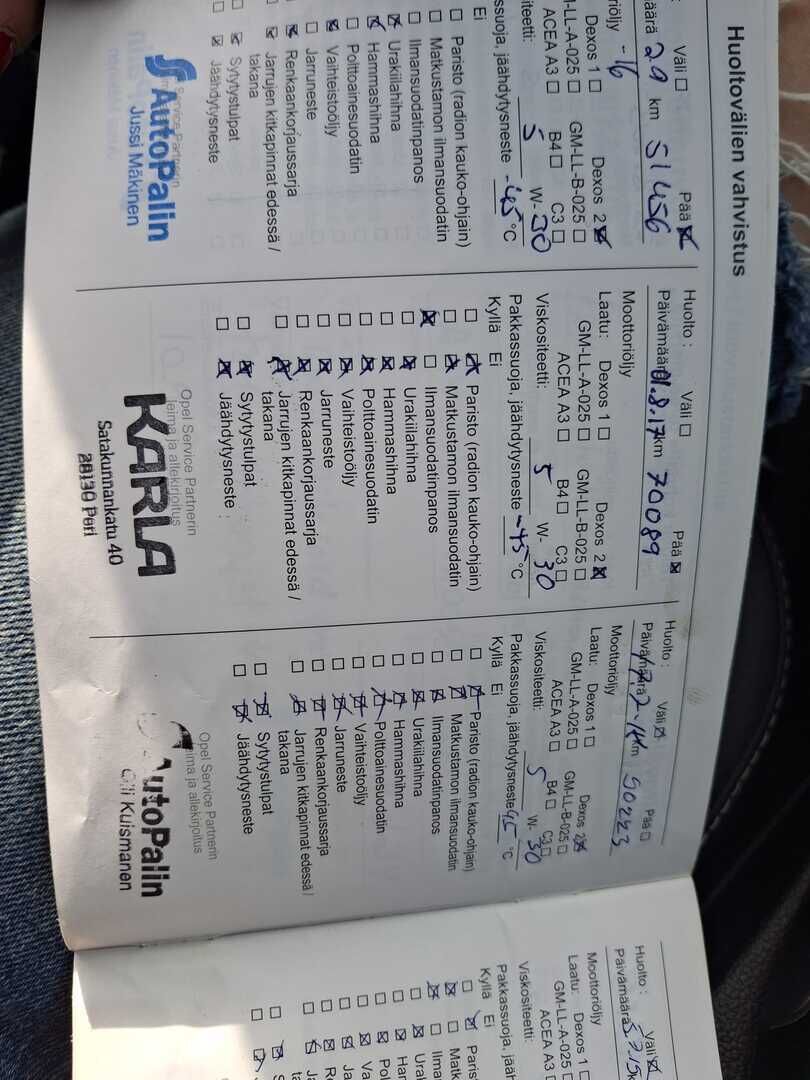 Huoltovälien vahvistus
Väli ☐ Pää ☒
2.9 km 51456
- 16
Dexos 1 ☐ Dexos 2 ☒
GM-LL-A-025 ☐ GM-LL-B-025 ☐
ACEA A3 ☐ B4 ☐ C3 ☐
5 W- 30
jäähdytysneste -45 °C
Ei
☐ Paristo (radion kauko-ohjain)
☐ Matkustamon ilmansuodatin
☐ Ilmansuodatinpanos
☒ Urakiilahihna
☒ Hammashihna
☐ Polttoainesuodatin
☒ Vaihteistoöljy
☐ Jarruneste
☒ Renkaankorjaussarja
☒ Jarrujen kitkapinnat edessä /
takana
☒ Sytytystulpat
☒ Jäähdytysneste
Service Partnerin
AutoPalin
Jussi Mäkinen
Huolto : Väli ☐ Pää ☒
Päivämäärä 01.8.17 km 70089
Moottoriöljy
Laatu: Dexos 1 ☐ Dexos 2 ☒
GM-LL-A-025 ☐ GM-LL-B-025 ☐
ACEA A3 ☐ B4 ☐ C3 ☐
Viskositeetti: 5 W- 30
Pakkassuoja, jäähdytysneste -45 °C
Kyllä Ei
☐ ☒ Paristo (radion kauko-ohjain)
☐ ☒ Matkustamon ilmansuodatin
☒ ☐ Ilmansuodatinpanos
☐ ☒ Urakiilahihna
☐ ☒ Hammashihna
☐ ☒ Polttoainesuodatin
☐ ☒ Vaihteistoöljy
☐ ☒ Jarruneste
☐ ☒ Renkaankorjaussarja
☐ ☒ Jarrujen kitkapinnat edessä /
takana
☐ ☒ Sytytystulpat
☐ ☒ Jäähdytysneste
Opel Service Partnerin
leima ja allekirjoitus
KARLA
Satakunnankatu 40
Huolto : Väli ☒ Pää ☐
Päivämäärä km 90223
Moottoriöljy
Laatu: Dexos 1 ☐ Dexos 2 ☒
GM-LL-A-025 ☐ GM-LL-B-025 ☐
ACEA A3 ☐ B4 ☐ C3 ☐
Viskositeetti: 5 W- 30
Pakkassuoja, jäähdytysneste 45 °C
Kyllä Ei
☐ ☒ Paristo (radion kauko-ohjain)
☐ ☒ Matkustamon ilmansuodatin
☐ ☒ Ilmansuodatinpanos
☐ ☒ Urakiilahihna
☐ ☒ Hammashihna
☐ ☒ Polttoainesuodatin
☐ ☒ Vaihteistoöljy
☐ ☒ Jarruneste
☐ ☒ Renkaankorjaussarja
☐ ☒ Jarrujen kitkapinnat edessä /
takana
☐ ☒ Sytytystulpat
☐ ☒ Jäähdytysneste
Opel Service Partnerin
leima ja allekirjoitus
AutoPalin
Kuismanen
Huolto : Väli ☒
Päivämäärä
Moottoriöljy
Laatu: Dexos 1 ☐
GM-LL-A-025 ☐
ACEA A3 ☐
Viskositeetti:
Pakkassuoja, jääh
Kyllä Ei
☐ ☒ Paris
☒ ☐ Matk
☒ ☐ Ilma
☐ ☒ Urak
☐ ☒ Ham
☐ ☒ Pol
☐ ☒ Va
☐ ☒ Ja
☐ ☒ R
☐ ☒ Ja